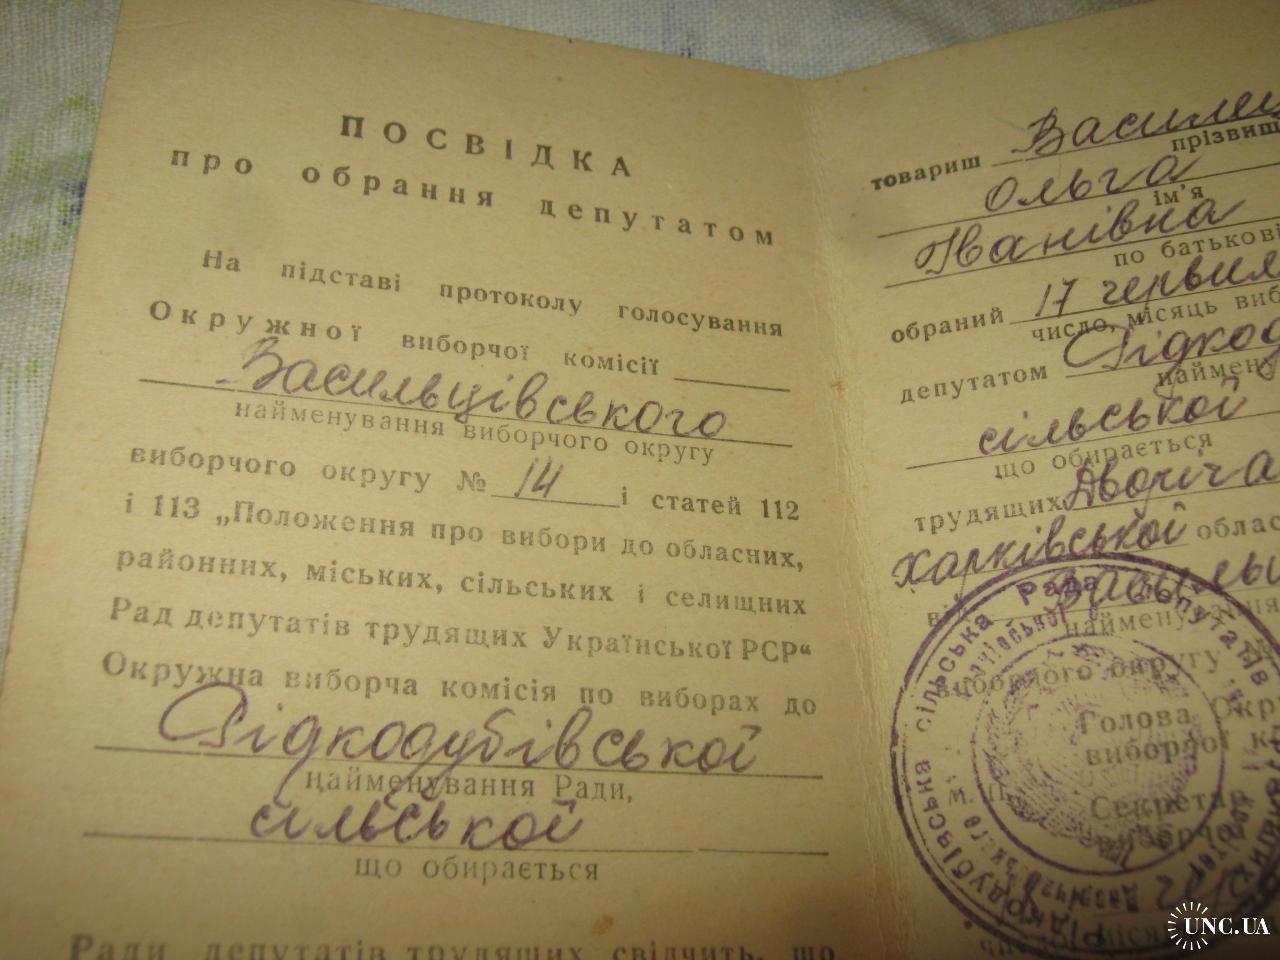 ПОСВІДКА
про обрання депутатом
На підставі протоколу голосування
Окружної виборчої комісії
Васильцівського
найменування виборчого округу
виборчого округу № 14 і статей 112
і 113 „Положення про вибори до обласних,
районних, міських, сільських і селищних
Рад депутатів трудящих Української РСР“
Окружна виборча комісія по виборах до
Рідкодубівської
найменування Ради,
сільської
що обирається
Ради депутатів трудящих свідчить, що
товариш
прізвищ
Ольга
ім'я
Іванівна
по батькові
обраний 17 червня
число, місяць виб
депутатом Рідкод
наймену
сільської
що обирається
трудящих Дворіча
Харківської облас
від
найменування
виборчого округу №
Голова Окр
виборчої к
м. п.
Секретар
виборчої
Рідкодубівська сільська Рада депутатів
UNC.UA